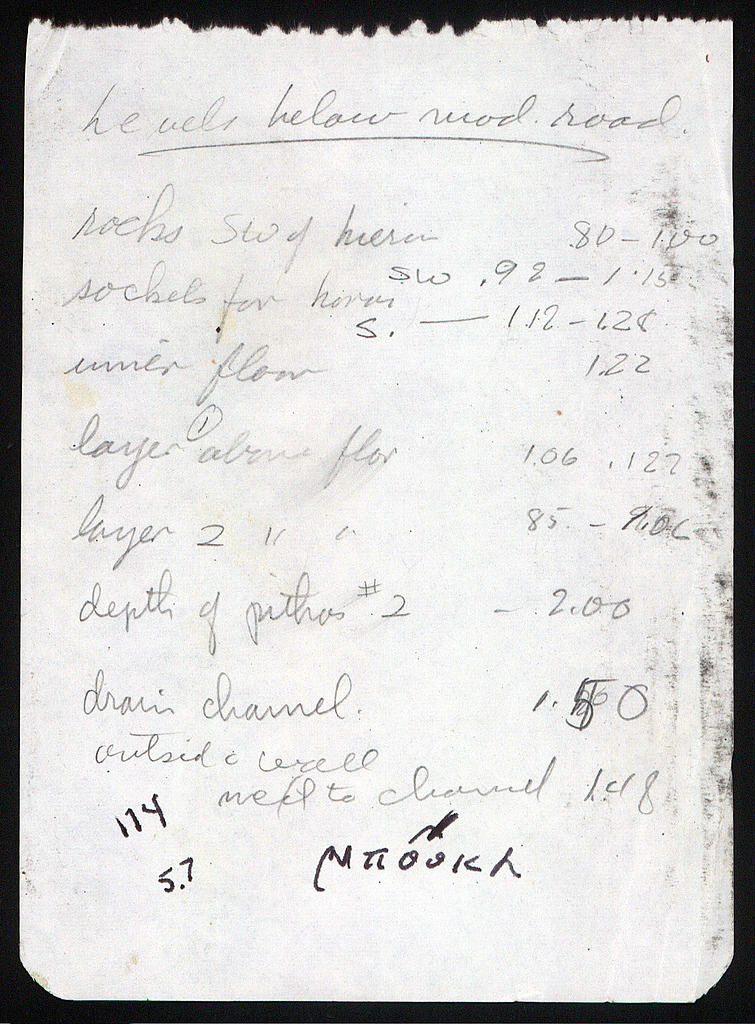 Levels below mod. road.
rocks SW of hieron .80 – 1.00
SW .92 – 1.15
sockets for horns
S. — 1.12 – 1.28
inner floor 1.22
layer 1 above flor 1.06 . 1.22
layer 2 " " 85 – 1.06
depth of pithos #2 – 2.00
drain channel. 1.50
outside well
next to channel 1.48
114
5.7